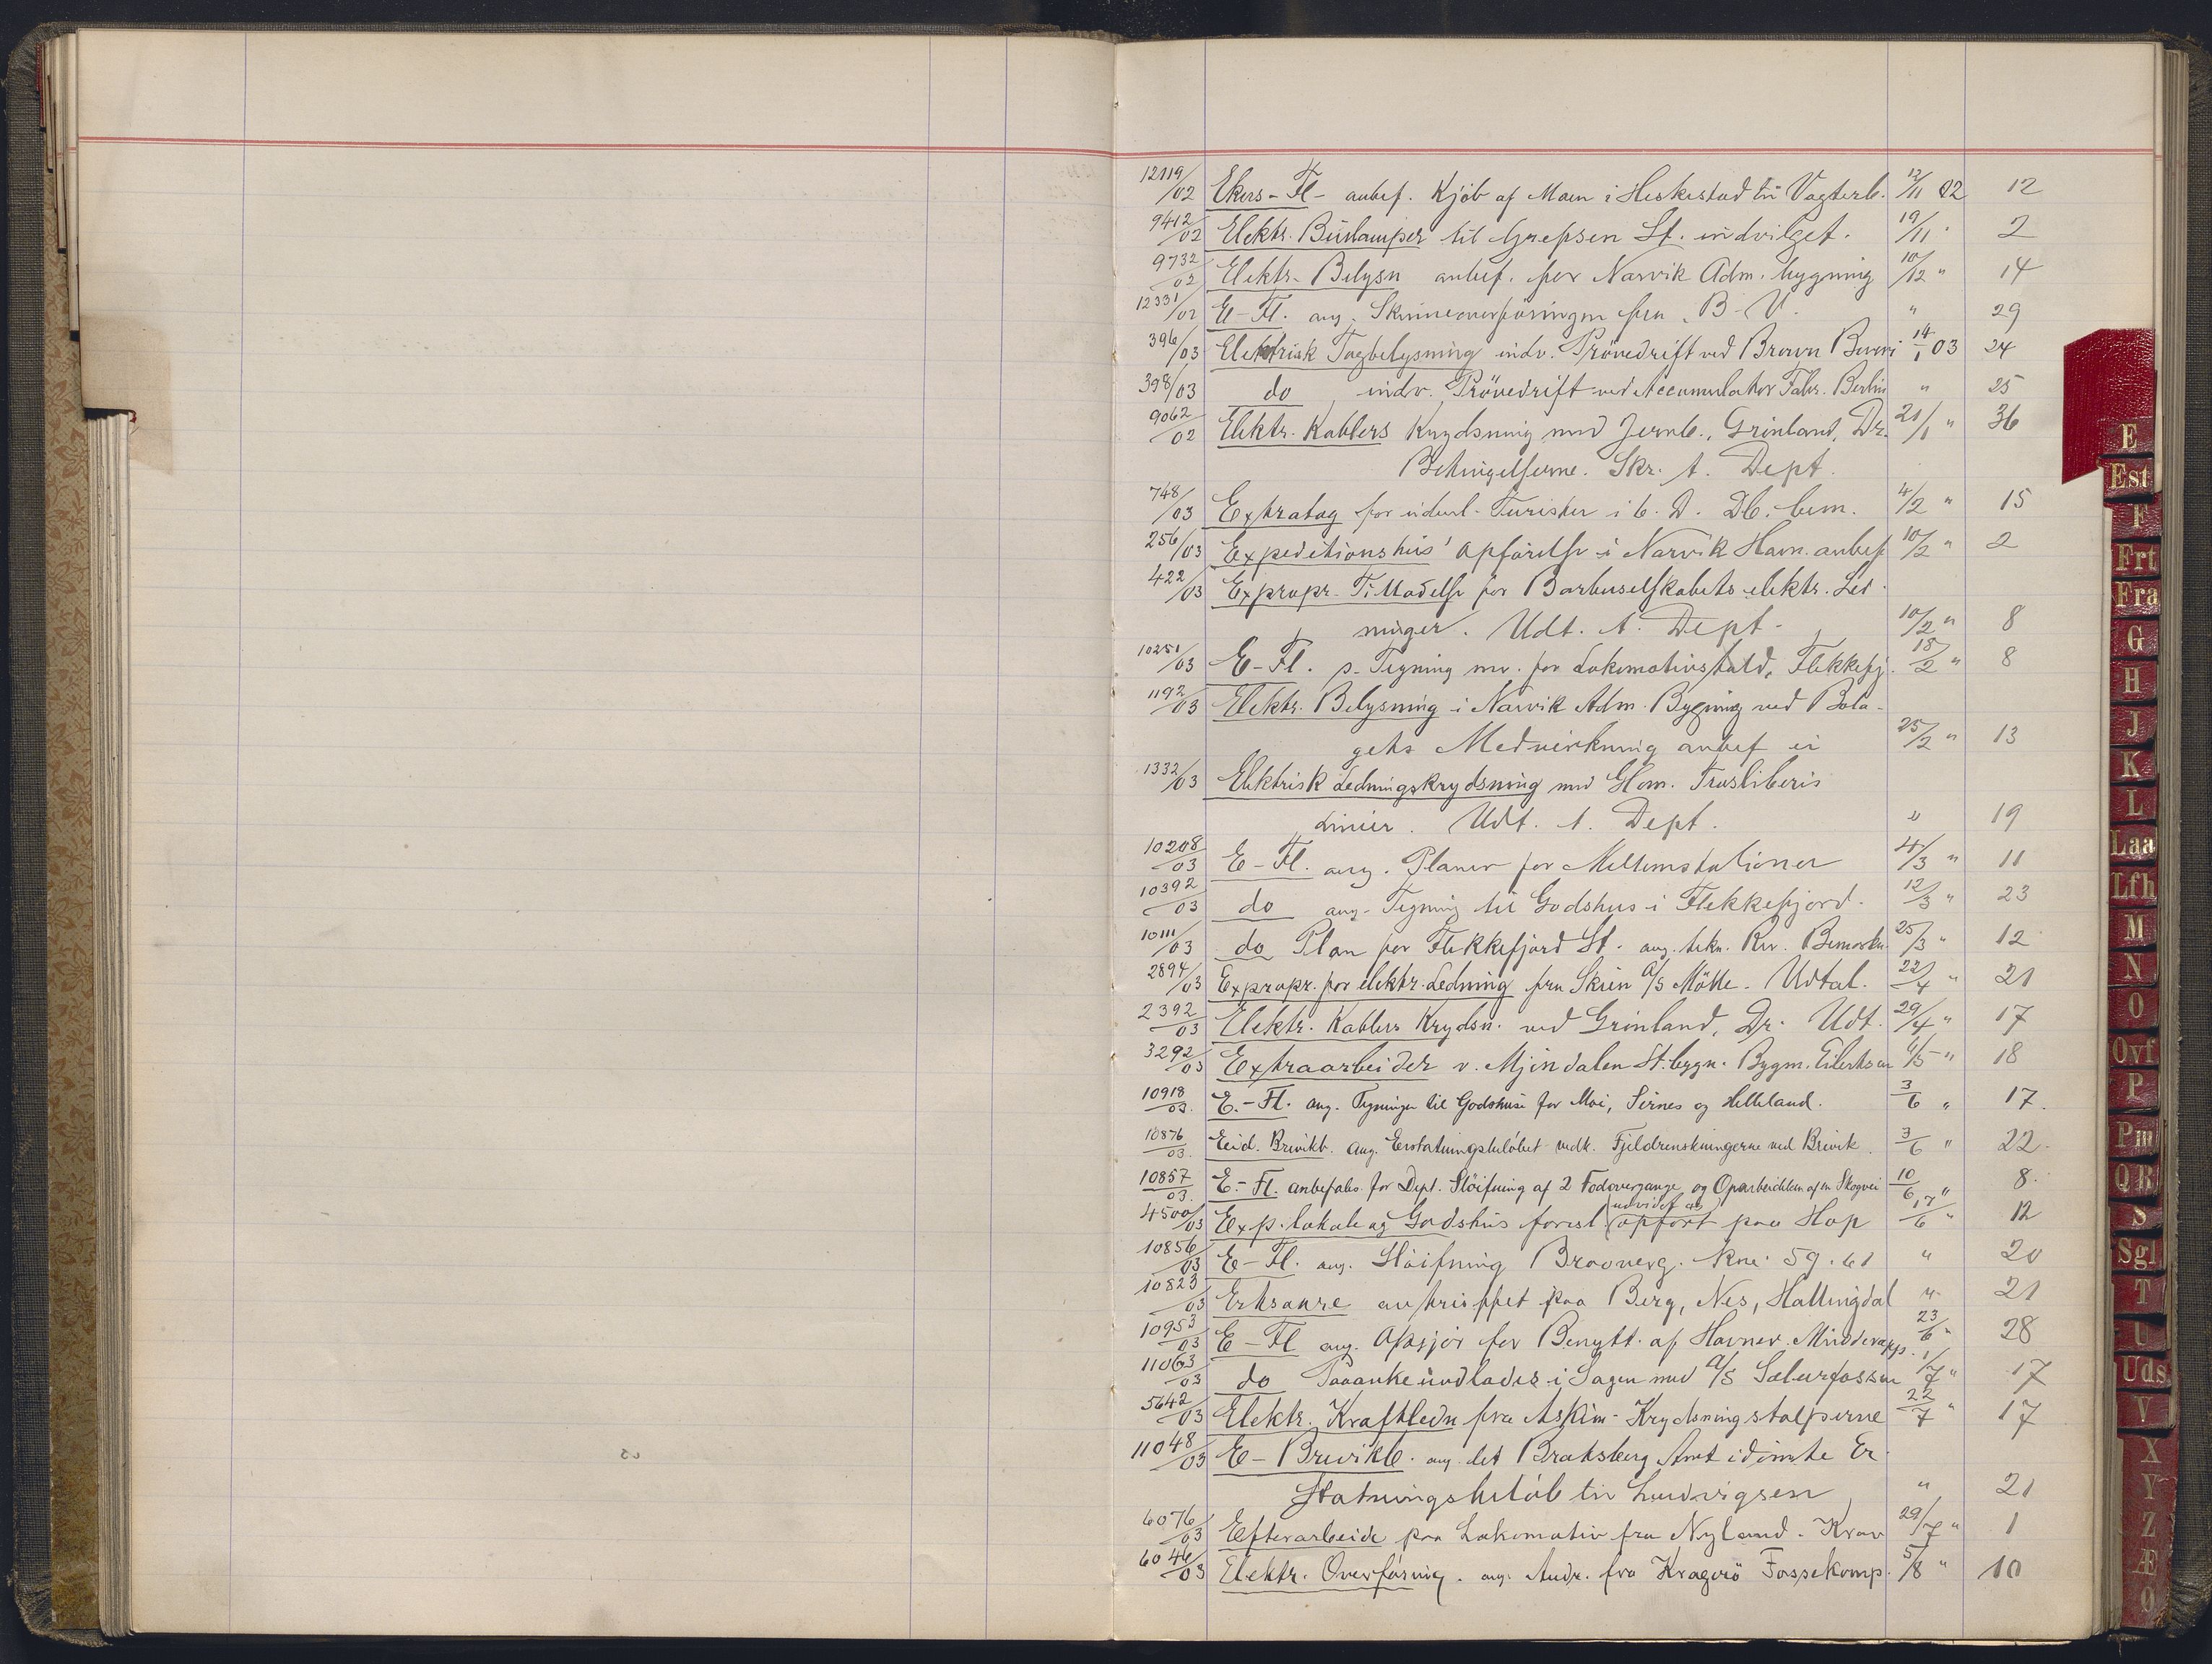 12119/02 Ekers-Fl- anbef. Kjöb af Moen i Heskestad til Vagterb. 12/11 02 12
9412/02 Elektr. Buelamper til Grefsen St. indvilget. 19/11 " 2
9732/02 Elektr. Belysn anbef. for Narvik Adm. bygning 10/12 " 14
12331/02 E-Fl. ang. Skinneoverföringen fra B-V. " 29
396/03 Elektrisk Togbelysning indv. Prövedrift ved Brown Boveri 14/1 03 24
398/03 do indv. Prövedrift ved Accumulator Fabr. Berlin " 25
9062/02 Elektr. Kablers Krydsning med Jernb., Grönland, Dr. 21/1 " 36
Betingelserne. Skr. t. Dept.
748/03 Extratog for udenl. Turister i 6. D. Db. bem. 4/2 " 15
256/03 Expeditionshus' Opförelse i Narvik Havn. anbef 10/2 " 2
422/03 Expropr. Tilladelse for Barbuselskabets elektr. Led-
ninger. Udt. t. Dept. 10/2 " 8
10251/03 E-Fl. s. Tegning mv. for Lokomotivstald, Flekkefj. 18/2 " 8
1192/03 Elektr. Belysning i Narvik Adm. Bygning ved Bola-
gets Medvirkning anbef ei 25/2 " 13
1332/03 Elektrisk Ledningskrydsning med Hom. Træsliberis
Linier. Udt. t. Dept. " 19
10208/03 E-Fl. ang. Planer for Mellemstationer 4/3 " 11
10392/03 do ang. Tegning til Godshus i Flekkefjord. 12/3 " 23
10111/03 do Plan for Flekkefjord St. ang. tekn. Rev. Bemærkn. 25/3 " 12
2894/03 Expropr. for elektr. Ledning fra Skien A/S Mölle. Udtal. 22/4 " 21
2392/03 Elektr. Kablers Krydsn. ved Grönland, Dr. Udt. 29/4 " 17
3292/03 Extraarbeider v. Mjöndalen St. bygn. Bygm. Eilertsen 6/5 " 18
10918/03. E.-Fl. ang. Tegninger til Godshuse for Moi, Sirnes og Helleland. 3/6 " 17.
10876/03. Eid. Brevikb. ang. Erstatningsbelöbet vedk. Fjeldrenskningerne ved Brevik. 3/6 " 22.
10857/03. E.-Fl. anbefales for Dept. Slöifning af 2 Fodovergange og Oparbeidelsen af en Skogvei 10/6 " 8.
4500/03 Exp. lokale og Godshus foresl (udvidet og) opfört paa Hop 17/6 " 12
10856/03 E-Fl. ang. Slöifning Brooverg. Kne. 59.61 " 20
10823/03 Ertsaare antruppet paa Berg, Nes, Hallingdal " 21
10953/03 E-Fl ang. Opsyor for Benytt. af Havnev. Mudderapp. 23/6 " 28
11063/03 do Paaanke undlades i Sagen med A/S Sælurfossen 1/7 " 17
5642/03 Elektr. Kraftledn fra Askim-Krydsningstolperne 22/7 " 17
11048/03 E-Brevikb. ang. det Bratsberg Amt idömte Er-
statningsbelöb til Ludvigsen " 21
6076/03 Efterarbeide paa Lokomotiv fra Nyland. Krav 29/7 " 1
6046/03 Elektr. Overföring. ang. Andr. fra Kragerö Fossekomp. 5/8 " 10
E
Est
F
Frt
Fra
G
H
J
K
L
Laa
Lfh
M
N
O
Ovf
P
Pm
QR
S
Sgl
T
U
Uds
V
X
Y
Z
Æ
Ø